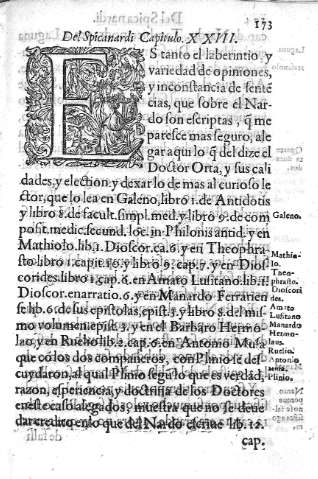 173
Del Spicanardi Capitulo. XXVII.
ES tanto el laberintio, y
variedad de opiniones,
y inconstancia de sentẽ
cias, que sobre el Nar-
do son escriptas, q̃ me
paresce mas seguro, ale
gar aqui lo q̃ del dize el
Doctor Orta, y sus cali
dades, y election, y dexar lo de mas al curioso le
ctor, que lo lea en Galeno, libro 1. de Antidotis
y libro 8. de facult. simpl. med. y libro 9. de com
posit. medic. secund. loc. in Philonis antid. y en
Mathiolo, lib. 1. Dioscor. ca. 6. y en Theophra-
sto. libro 1. capit. 19. y libro 9. cap. 7. y en Dios
corides libro 1. cap. 6. en Amato Lusitano lib. 1.
Dioscor. enarratio. 6. y en Manardo Ferrarien
se lib. 6. de sus epistolas, epist. 3. y libro 8. del mis-
mo volumen epist. 3. y en el Barbaro Hermo
lao, y en Ruelio lib. 2. cap. 6. en Antonio Musa
que cõ los dos compañeros, con Plinio se des-
cuydaron, al qual Plinio seguí lo que es verdad,
razon, esperiencia, y doctrina de los Doctores
en este caso alegados, muestra que no se deue
dar credito en lo que del Nardo escriue lib. 12.
cap.
Galeno.
Mathio-
lo.
Theo-
phrasto.
Dioscori
des.
Amato
Lusitano
Manardo
Hermo-
lao.
Ruelio.
Antonio
Musa.
Plinio.